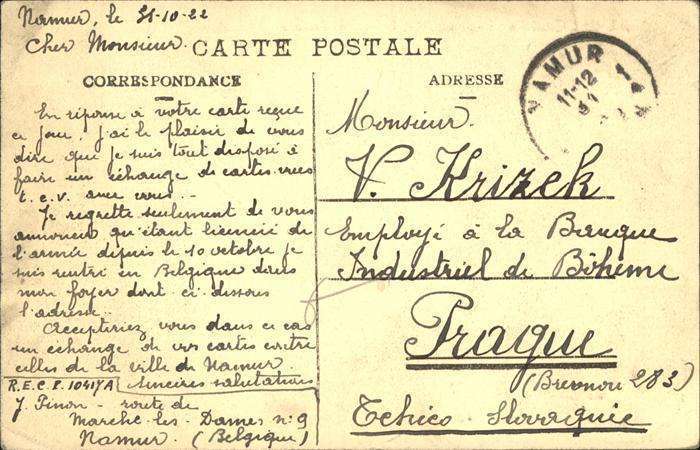 Namur, le 31-10-22
Cher Monsieur.
CARTE POSTALE
CORRESPONDANCE
En réponse à votre carte reçue
ce jour, j'ai le plaisir de vous
dire que je suis tout disposé à
faire un échange de cartes-vues
t.c.v. avec vous..
Je regrette seulement de vous
annoncer qu'étant licencié de
l'armée depuis le 10 octobre je
suis rentré en Belgique dans
mon foyer dont ci-dessous
l'adresse.
Accepteriez vous dans ce cas
un échange de vos cartes contre
celles de la ville de Namur.
Sincères salutations
R.E.C.P. 10417A
J. Pinon - route de
Marche-les-Dames n:9
Namur. (Belgique)
ADRESSE
Monsieur.
V. Krizek
Employé à la Banque
Industriel de Bôheme
Prague
(Brevnov 283)
Tchéco-Slovaquie
NAMUR 1
11-12
31